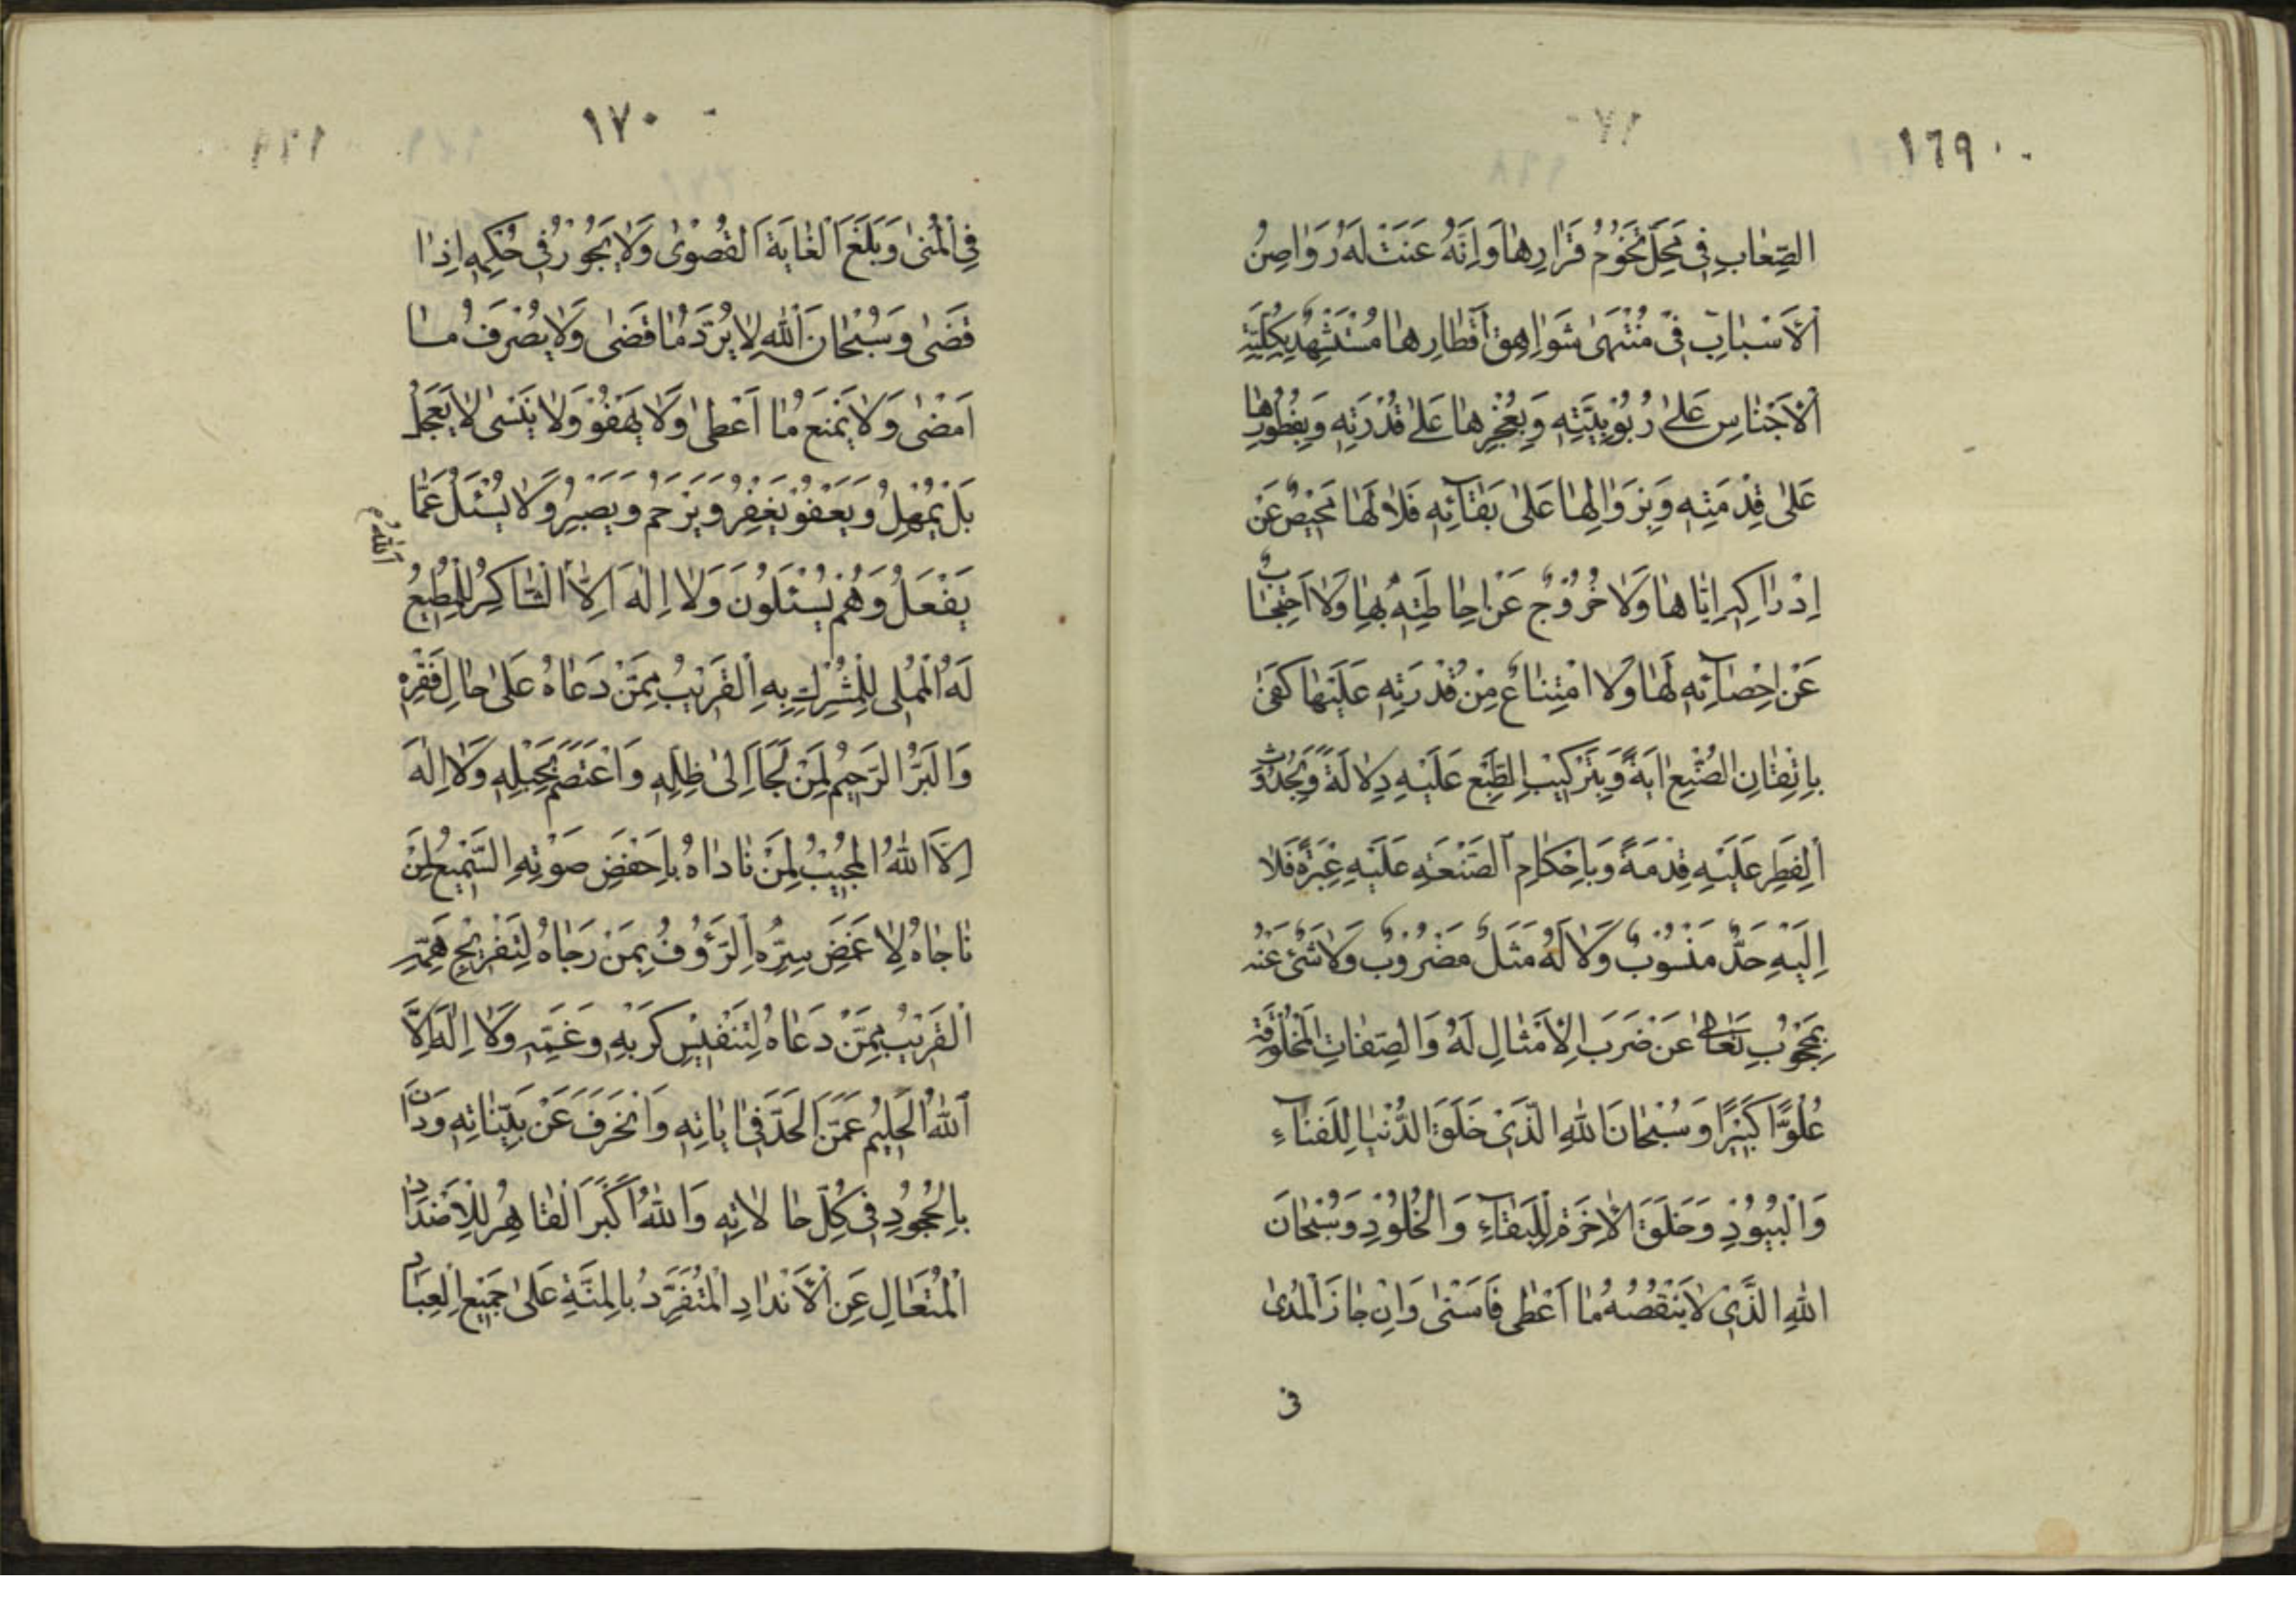 ١٦٩
الصِّعٰابِ فِى مَحَلِّ تُخُوْمِ قَرٰارِهٰا وَاَنَّهُ عَنَتْ لَهُ رَوٰاصِنُ
الْاَسْبٰابِ فِى مُنْتَهىٰ شَوٰاهِقِ اَقْطٰارِهٰا مُسْتَشْهِدٌ بِكُلِّيَّةِ
الْاَجْنٰاسِ عَلىٰ رُبُوْبِيَّتِهِ وَبِعَجْزِهٰا عَلىٰ قُدْرَتِهِ وَبِفُطُوْرِهٰا
عَلىٰ قِدْمَتِهِ وَبِزَوٰالِهٰا عَلىٰ بَقٰآئِهِ فَلاٰ لَهٰا مَحِيْصٌ عَنْ
اِدْرٰاكِهِ اِيّٰاهٰا وَلاٰ خُرُوْجٌ عَنْ اِحٰاطَتِهِ بِهٰا وَلاٰ احْتِجٰابٌ
عَنْ اِحْصٰآئِهِ لَهٰا وَلاٰ امْتِنٰاعٌ مِنْ قُدْرَتِهِ عَلَيْهٰا كَفىٰ
بِاِتْقٰانِ الصُّنْعِ اٰيَةً وَبِتَرْكِيْبِ الطَّبْعِ عَلَيْهِ دِلاٰلَةً وَبِحُدُوْثِ
الْفِطَرِ عَلَيْهِ قِدْمَةً وَبِاِحْكٰامِ الصَّنْعَةِ عَلَيْهِ عِبْرَةً فَلاٰ
اِلَيْهِ حَدٌّ مَنْسُوْبٌ وَلاٰ لَهُ مَثَلٌ مَضْرُوْبٌ وَلاٰ شَىْءٌ عَنْهُ
بِمَحْجُوْبٍ تَعٰالىٰ عَنْ ضَرْبِ الْاَمْثٰالِ لَهُ وَالصِّفٰاتِ الْمَخْلُوْقَةِ
عُلُوًّا كَبِيْرًا وَسُبْحٰانَ اللهِ الَّذِىْ خَلَقَ الدُّنْيٰا لِلْفَنٰآءِ
وَالْبُيُوْدِ وَخَلَقَ الْاٰخِرَةَ لِلْبَقٰآءِ وَالْخُلُوْدِ وَسُبْحٰانَ
اللهِ الَّذِىْ لاٰ يَنْقُصُهُ مٰا اَعْطىٰ فَاَسْنىٰ وَاِنْ جٰازَ الْمَدىٰ
فى
١٧٠
فِى الْمُنىٰ وَبَلَغَ الْغٰايَةَ الْقُصْوىٰ وَلاٰ يَجُوْرُ فِى حُكْمِهِ اِذٰا
قَضىٰ وَسُبْحٰانَ اللهِ لاٰ يُرَدُّ مٰا قَضىٰ وَلاٰ يُصْرَفُ مٰا
اَمْضىٰ وَلاٰ يُمْنَعُ مٰا اَعْطىٰ وَلاٰ يَهْفُوْ وَلاٰ يَنْسىٰ لاٰ يَعْجَلُ
بَلْ يُمْهِلُ وَيَعْفُوْ يَغْفِرُ وَيَرْحَمُ وَيَصْبِرُ وَلاٰ يُسْئَلُ عَمّٰا
يَفْعَلُ وَهُمْ يُسْئَلُوْنَ وَلاٰ اِلٰهَ اِلاَّ الشّٰاكِرُ لِلْمُطِيْعِ
اللّٰهُ
لَهُ الْمُمْلِى لِلْمُشْرِكِ بِهِ الْقَرِيْبُ مِمَّنْ دَعٰاهُ عَلىٰ حٰالِ فَقْرِهِ
وَالْبَرُّ الرَّحِيْمُ لِمَنْ لَجَأَ اِلىٰ ظِلِّهِ وَاعْتَصَمَ بِحَبْلِهِ وَلاٰ اِلٰهَ
اِلاَّ اللهُ الْمُجِيْبُ لِمَنْ نٰادٰاهُ بِاَخْفَضِ صَوْتِهِ السَّمِيْعُ لِمَنْ
نٰاجٰاهُ لِاَغْمَضِ سِرِّهِ الرَّؤُوْفُ بِمَنْ رَجٰاهُ لِتَفْرِيْجِ هَمِّهِ
الْقَرِيْبُ مِمَّنْ دَعٰاهُ لِتَنْفِيْسِ كَرْبِهِ وَغَمِّهِ وَلاٰ اِلٰهَ اِلاَّ
اللهُ الْحَلِيْمُ عَمَّنْ اَلْحَدَ فِى اٰيٰاتِهِ وَانْحَرَفَ عَنْ بَيِّنٰاتِهِ وَدٰانَ
بِالْجُحُوْدِ فِى كُلِّ حٰالاٰتِهِ وَاللهُ اَكْبَرُ الْقٰاهِرُ لِلْاَضْدٰادِ
الْمُتَعٰالِ عَنِ الْاَنْدٰادِ الْمُتَفَرِّدُ بِالْمِنَّةِ عَلىٰ جَمِيْعِ الْعِبٰادِ